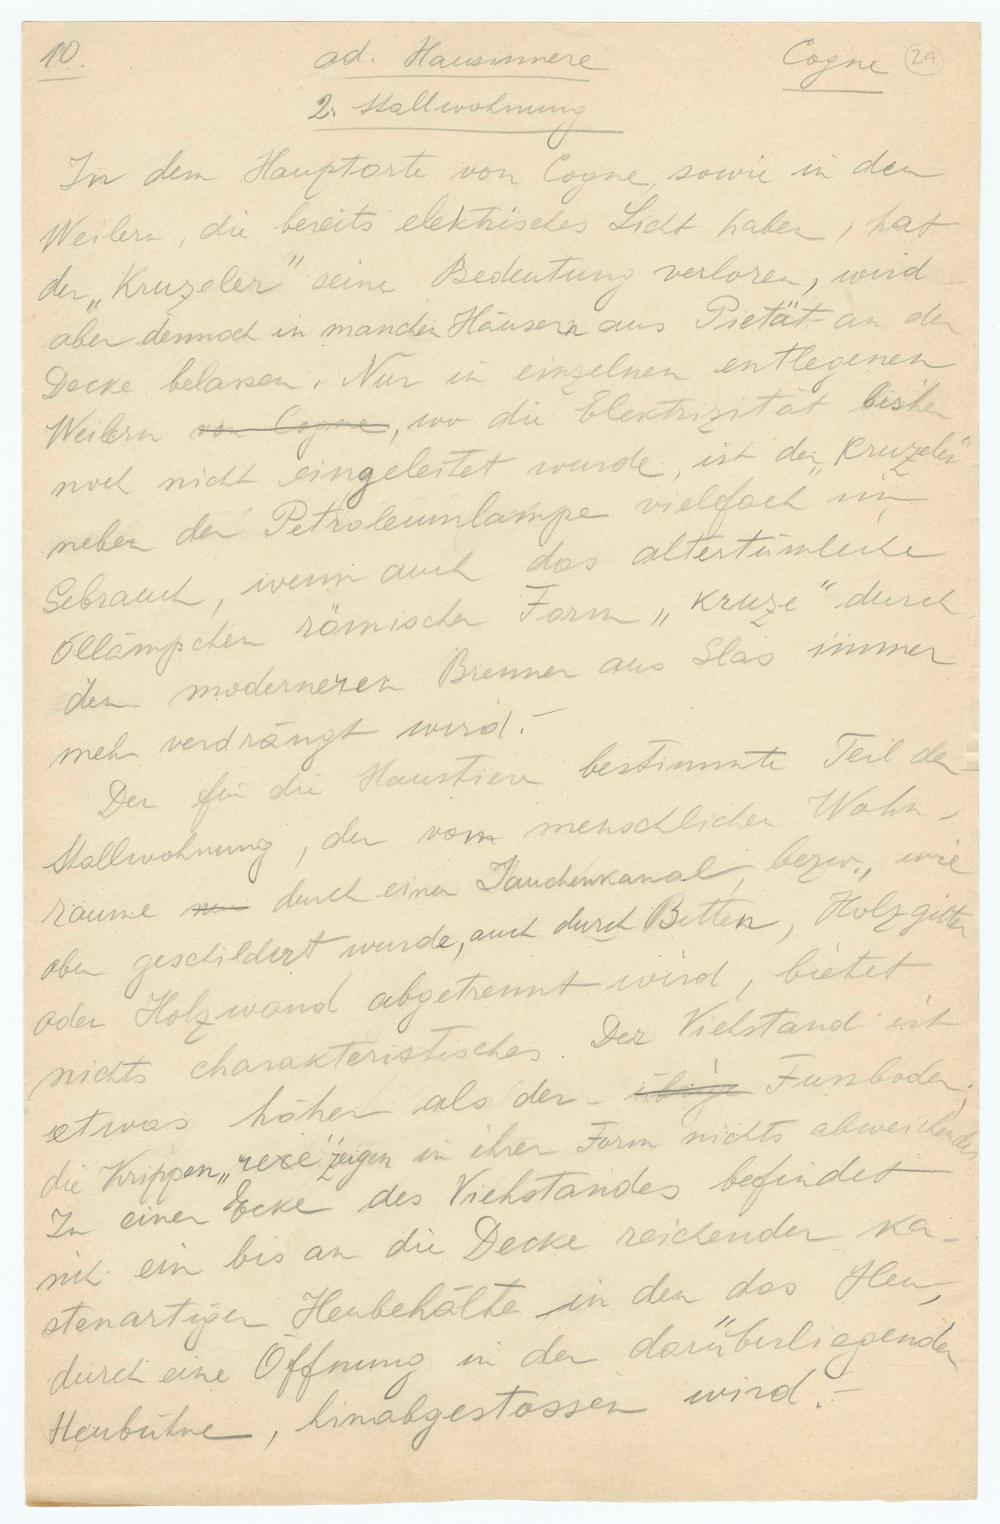 10. ad. Hausinnere Cogne 24
2. Stallwohnung
In dem Hauptorte von Cogne, sowie in den
Weilern, die bereits elektrisches Licht haben, hat
der „Kruzeler" seine Bedeutung verloren, wird
aber dennoch in manchen Häusern aus Pietät an der
Decke belassen. Nur in einzelnen entlegenen
Weilern von Cogne, wo die Elektrizität bisher
noch nicht eingeleitet wurde, ist der „Kruzeler"
neben der Petroleumlampe vielfach im
Gebrauch, wenn auch das altertümliche
Öllämpchen römischer Form „Kruze" durch
den moderneren Brenner aus Glas immer
mehr verdrängt wird.-
Der für die Haustiere bestimmte Teil der
Stallwohnung, der vom menschlichen Wohn-
raume durch einen Jauchenkanal, bezw., wie
oben geschildert wurde, auch durch Betten, Holzgitter
oder Holzwand abgetrennt wird, bietet
nichts charakteristisches. Der Viehstand ist
etwas höher als der übrige Fussboden,
die Krippen „reze" zeigen in ihrer Form nichts abweichendes
In einer Ecke des Viehstandes befindet
sich ein bis an die Decke reichender ka-
stenartiger Heubehälter in den das Heu,
durch eine Öffnung in der darüberliegenden
Heubühne, hinabgestossen wird.-